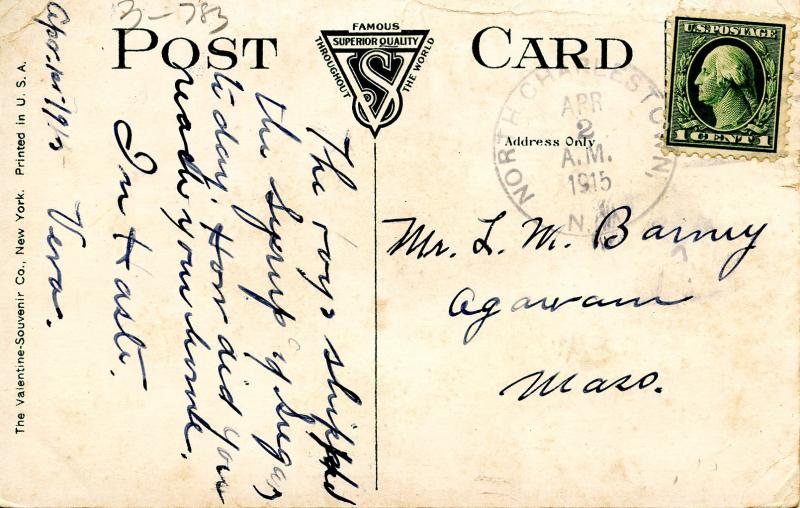 3-783
POST CARD
FAMOUS
SUPERIOR QUALITY
THROUGHOUT THE WORLD
VS
U.S. POSTAGE
1 CENT 1
NORTH CHARLESTOWN,
APR
2
A.M.
1915
N.H.
Address Only
Mr. L. M. Barney
Agawam
Mass.
The boys shipped
the Syrup & Sugar
to day. How did you
reach your home.
In Haste.
Vera.
Apr. 1st, 1915
The Valentine-Souvenir Co., New York. Printed in U. S. A.